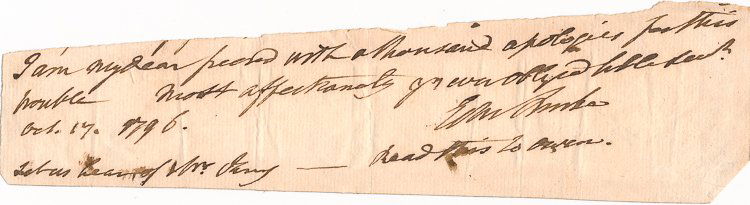 I am my dear freind with a thousand apologies for this
trouble Most affectionately yr ever obliged hble servt
Edm Burke
Oct. 17. 1796.
Let us hear of
Read this to Owen.